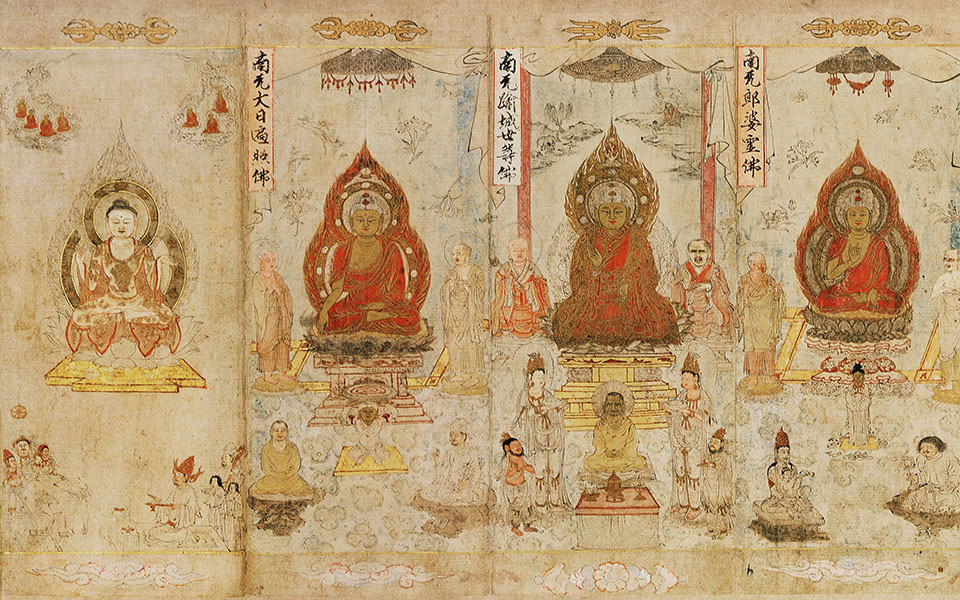 南无郎婆霊佛
南无踰城世尊佛
南无大日遍照佛